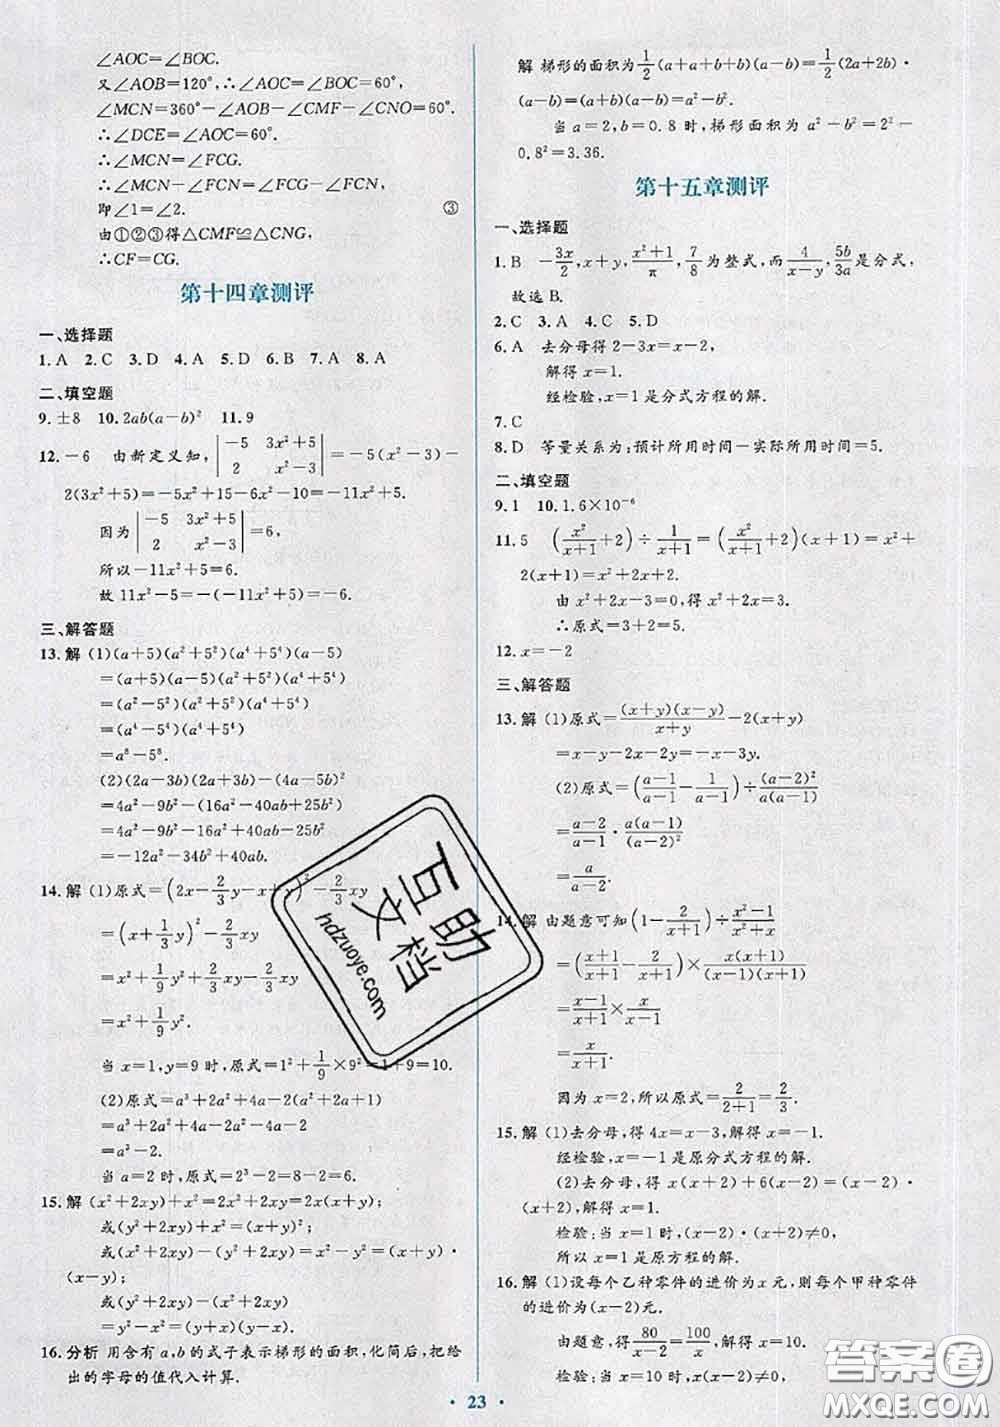 ∠AOC=∠BOC.
又∠AOB=120°,∴∠AOC=60°,
∠MCN=360°-∠AOB-∠CMF-∠CNO=60°.
∴∠DCE=∠AOC=60°.
∴∠MCN=∠FCG.
∴∠MCN-∠FCN=∠FCG-∠FCN,
即∠1=∠2. ③
由①②③得△CMF≌△CNG,
∴CF=CG.
第十四章测评
一、选择题
1.A 2.C 3.D 4.A 5.D 6.B 7.A 8.A
二、填空题
9.±8 10.2ab(a-b)² 11.9
12.-6 由新定义知,|-5 3x²+5; 2 x²-3|=-5(x²-3)-
2(3x²+5)=-5x²+15-6x²-10=-11x²+5.
因为|-5 3x²+5; 2 x²-3|=6,
所以-11x²+5=6.
故 11x²-5=-(-11x²+5)=-6.
三、解答题
13.解 (1)(a+5)(a²+5²)(a⁴+5⁴)(a-5)
=(a+5)(a-5)(a²+5²)(a⁴+5⁴)
=(a²-5²)(a²+5²)(a⁴+5⁴)
=(a⁴-5⁴)(a⁴+5⁴)
=a⁸-5⁸.
(2)(2a-3b)(2a+3b)-(4a-5b)²
=4a²-9b²-(16a²-40ab+25b²)
=4a²-9b²-16a²+40ab-25b²
=-12a²-34b²+40ab.
14.解 (1)原式=(2x-2/3y-x+y)²-2/3xy
=(x+1/3y)²-2/3xy
=x²+1/9y²+2/3xy-2/3xy
=x²+1/9y².
当 x=1,y=9 时,原式=1²+1/9×9²=1+9=10.
(2)原式=a³+2a²+4a-2(a²+2a+1)
=a³+2a²+4a-2a²-4a-2
=a³-2.
当 a=2 时,原式=2³-2=8-2=6.
15.解 (x²+2xy)+x²=2x²+2xy=2x(x+y);
或(y²+2xy)+x²=(x+y)²;
或(x²+2xy)-(y²+2xy)=x²-y²=(x+y)·
(x-y);
或(y²+2xy)-(x²+2xy)
=y²-x²=(y+x)(y-x).
16.分析 用含有 a,b 的式子表示梯形的面积,化简后,把给
出的字母的值代入计算.
解 梯形的面积为1/2(a+a+b+b)(a-b)=1/2(2a+2b)·
(a-b)=(a+b)(a-b)=a²-b².
当 a=2,b=0.8 时,梯形面积为 a²-b²=2²-
0.8²=3.36.
第十五章测评
一、选择题
1.B -3x/2,x+y,(x²+1)/π,7/8为整式,而4/(x-y),5b/3a是分式,
故选 B.
2.C 3.A 4.C 5.D
6.A 去分母得 2-3x=x-2,
解得 x=1.
经检验,x=1 是分式方程的解.
7.C
8.D 等量关系为:预计所用时间-实际所用时间=5.
二、填空题
9.1 10.1.6×10⁻⁶
11.5 (x²/(x+1)+2)÷1/(x+1)=(x²/(x+1)+2)(x+1)=x²+
2(x+1)=x²+2x+2.
由 x²+2x-3=0,得 x²+2x=3,
∴原式=3+2=5.
12.x=-2
三、解答题
13.解 (1)原式=(x+y)(x-y)/(x+y)-2(x+y)
=x-y-2x-2y=-x-3y.
(2)原式=((a-1)/(a-1)-1/(a-1))÷(a-2)²/(a(a-1))
=(a-2)/(a-1)·a(a-1)/(a-2)²
=a/(a-2).
14.解 由题意可知(1-2/(x+1))÷(x²-1)/(x²+x)
=((x+1)/(x+1)-2/(x+1))×x(x+1)/((x-1)(x+1))
=(x-1)/(x+1)×x/(x-1)
=x/(x+1).
因为 x=2,所以原式=2/(2+1)=2/3.
15.解 (1)去分母,得 4x=x-3,解得 x=-1.
经检验,x=-1 是原分式方程的解.
(2)去分母,得 x(x+2)+6(x-2)=(x-2)·
(x+2),解得 x=1.
检验:当 x=1 时,(x-2)·(x+2)≠0,
所以 x=1 是原方程的解.
16.解 (1)设每个乙种零件的进价为 x 元,则每个甲种零件
的进价为(x-2)元.
由题意,得80/(x-2)=100/x,解得 x=10.
23
互助文档
hdzuoye.com
答案圈
MXQE.COM